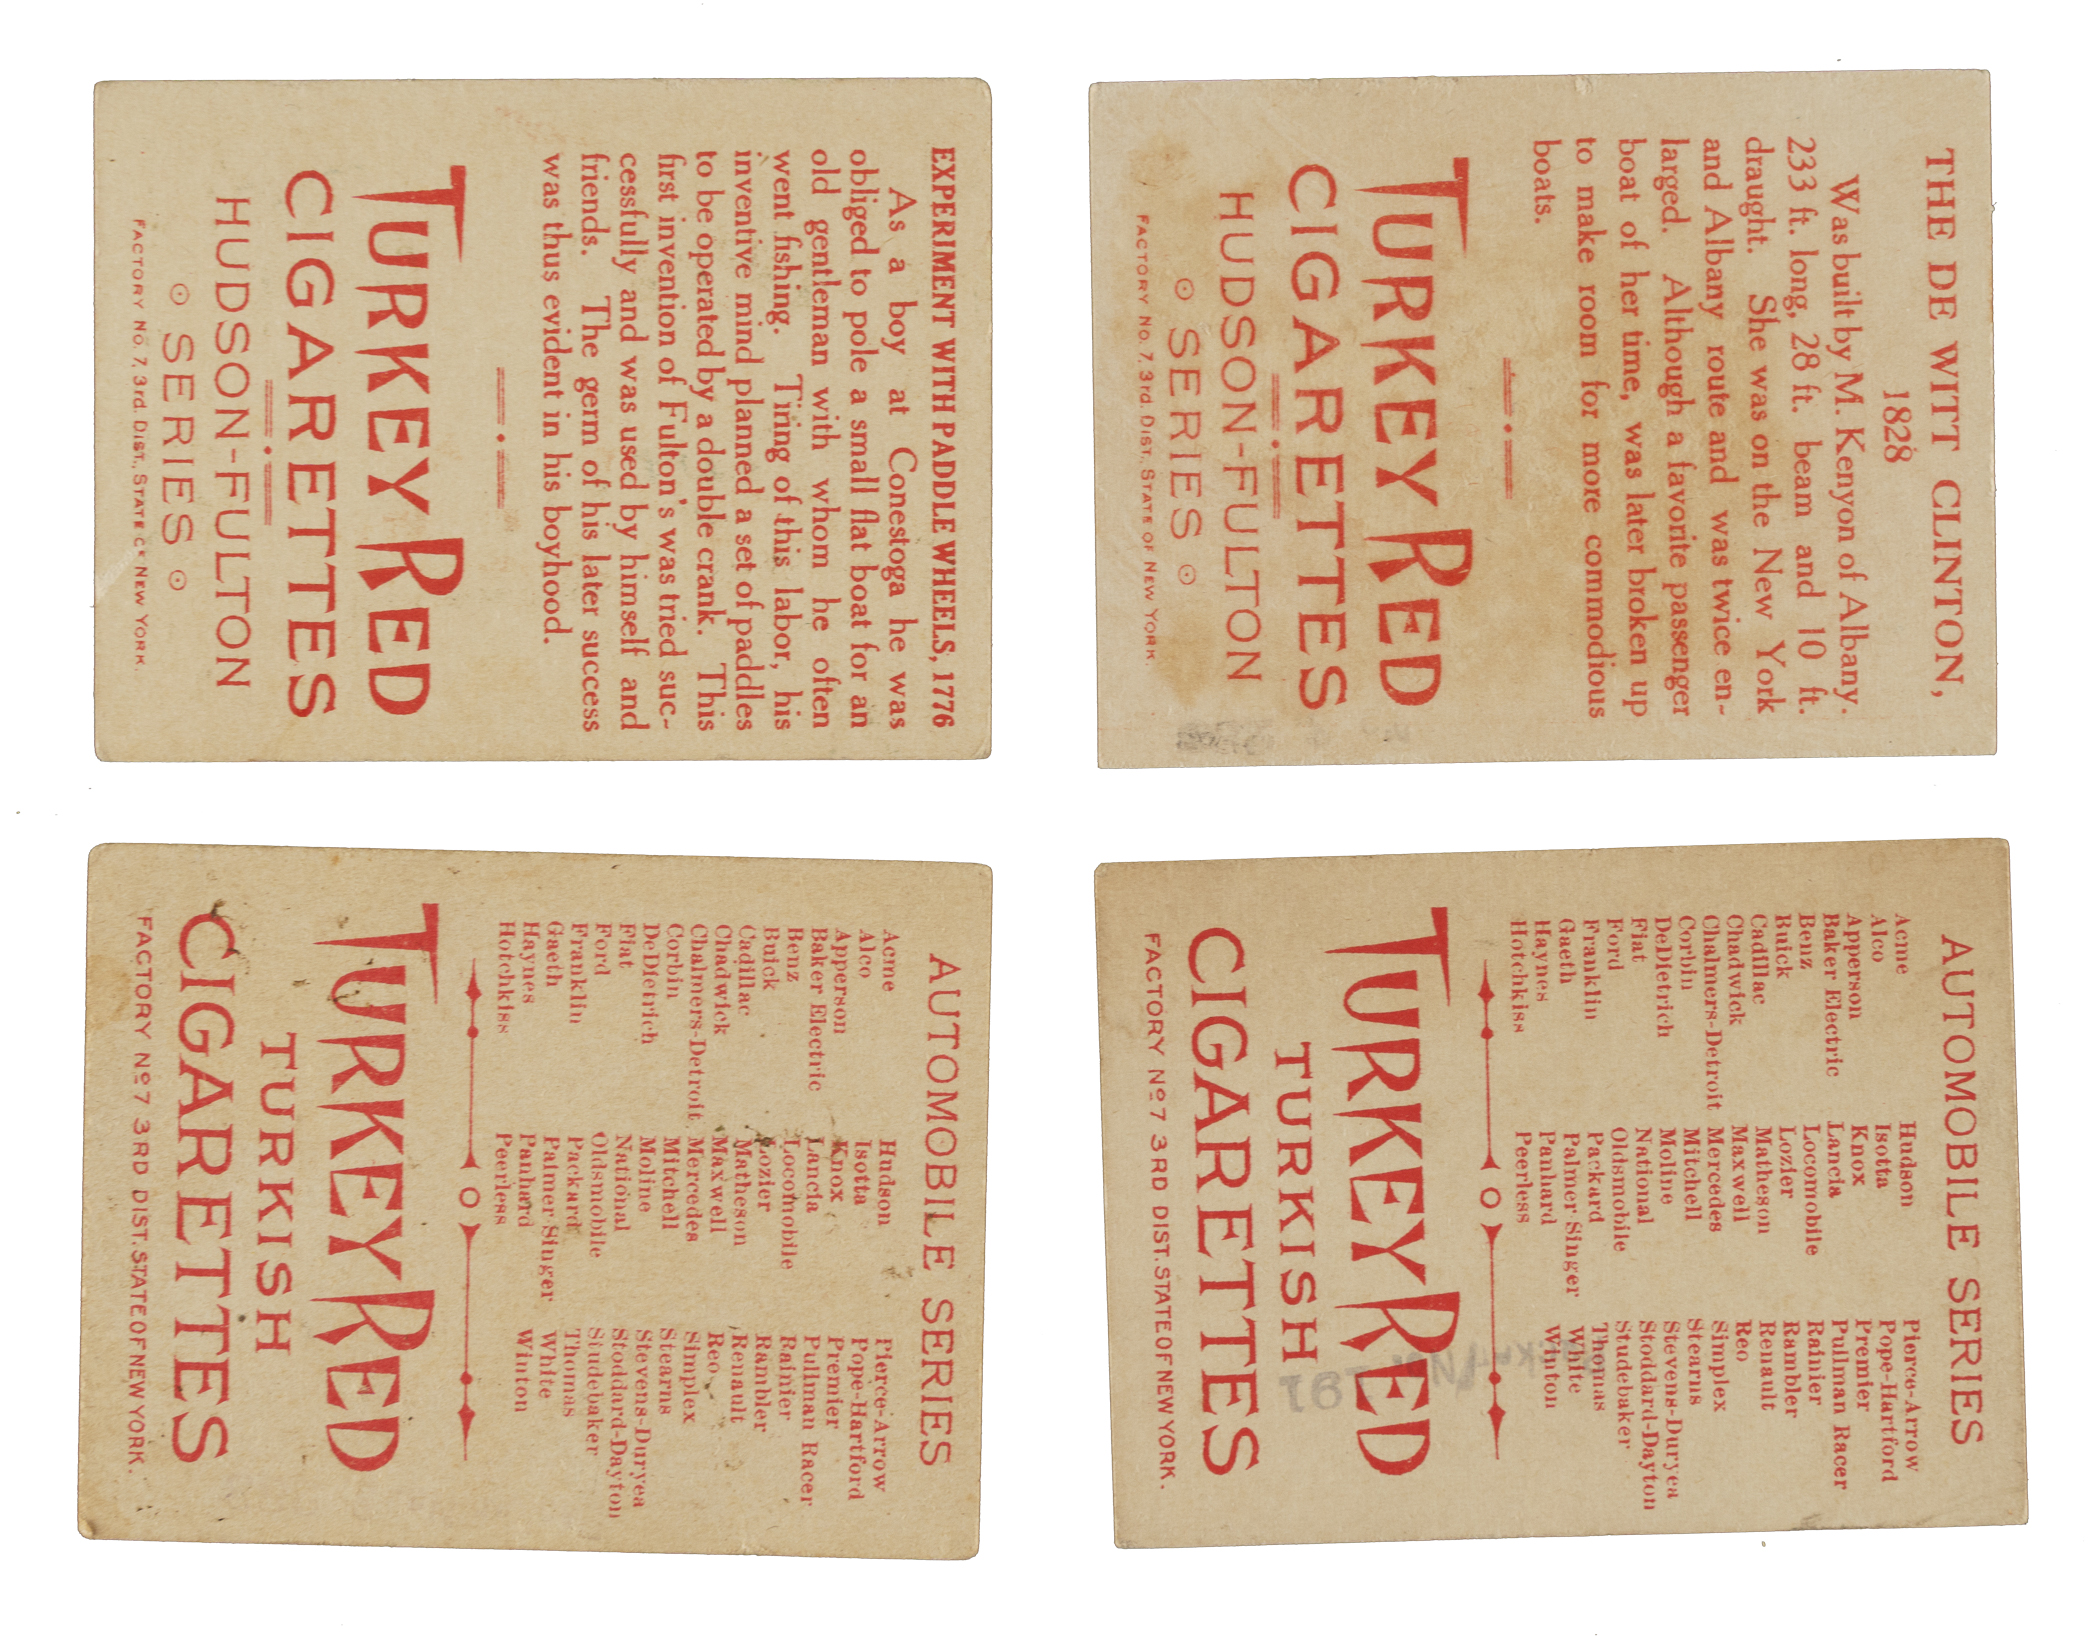 EXPERIMENT WITH PADDLE WHEELS, 1776
As a boy at Conestoga he was
obliged to pole a small flat boat for an
old gentleman with whom he often
went fishing. Tiring of this labor, his
inventive mind planned a set of paddles
to be operated by a double crank. This
first invention of Fulton's was tried suc-
cessfully and was used by himself and
friends. The germ of his later success
was thus evident in his boyhood.
TURKEY RED
CIGARETTES
HUDSON-FULTON
SERIES
FACTORY NO. 7, 3rd. DIST., STATE OF NEW YORK.
THE DE WITT CLINTON,
1828
Was built by M. Kenyon of Albany.
233 ft. long, 28 ft. beam and 10 ft.
draught. She was on the New York
and Albany route and was twice en-
larged. Although a favorite passenger
boat of her time, was later broken up
to make room for more commodious
boats.
TURKEY RED
CIGARETTES
HUDSON-FULTON
SERIES
FACTORY NO. 7, 3rd. DIST., STATE OF NEW YORK.
AUTOMOBILE SERIES
Acme Hudson Pierce-Arrow
Alco Isotta Pope-Hartford
Apperson Knox Premier
Baker Electric Lancia Pullman Racer
Benz Locomobile Rainier
Buick Lozier Rambler
Cadillac Matheson Renault
Chadwick Maxwell Reo
Chalmers-Detroit Mercedes Simplex
Corbin Mitchell Stearns
DeDietrich Moline Stevens-Duryea
Fiat National Stoddard-Dayton
Ford Oldsmobile Studebaker
Franklin Packard Thomas
Gaeth Palmer Singer White
Haynes Panhard Winton
Hotchkiss Peerless
TURKEY RED
TURKISH
CIGARETTES
FACTORY Nº 7 3RD DIST. STATE OF NEW YORK.
AUTOMOBILE SERIES
Acme Hudson Pierce-Arrow
Alco Isotta Pope-Hartford
Apperson Knox Premier
Baker Electric Lancia Pullman Racer
Benz Locomobile Rainier
Buick Lozier Rambler
Cadillac Matheson Renault
Chadwick Maxwell Reo
Chalmers-Detroit Mercedes Simplex
Corbin Mitchell Stearns
DeDietrich Moline Stevens-Duryea
Fiat National Stoddard-Dayton
Ford Oldsmobile Studebaker
Franklin Packard Thomas
Gaeth Palmer Singer White
Haynes Panhard Winton
Hotchkiss Peerless
TURKEY RED
TURKISH
CIGARETTES
FACTORY Nº 7 3RD DIST. STATE OF NEW YORK.